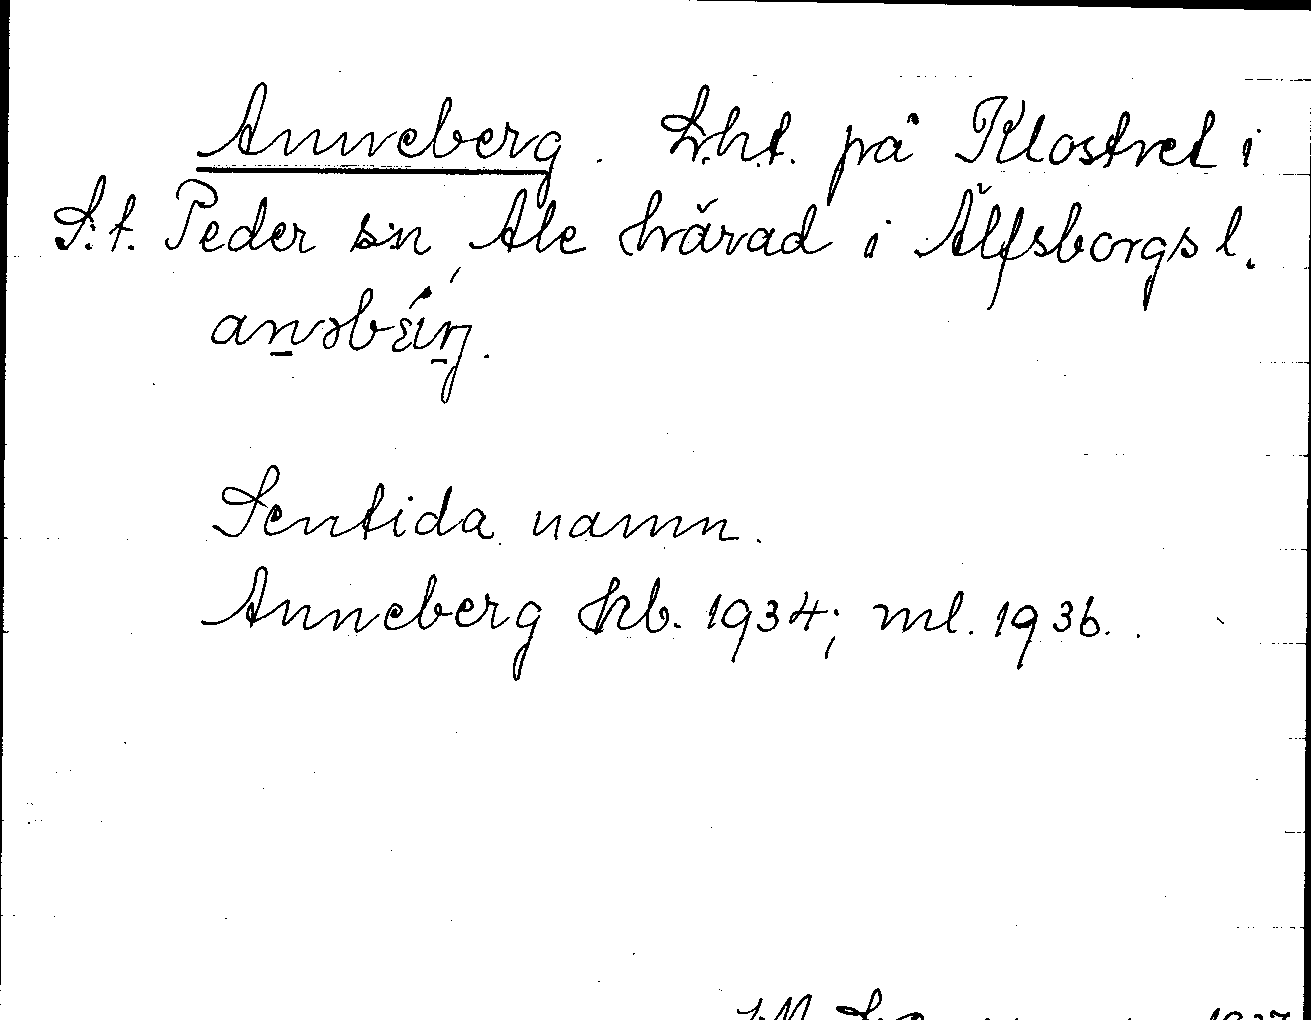 Anneberg. L.h.t. på Klostret i
S:t. Peder sn, Ale härad i Älfsborgs l.
Sentida namn.
Anneberg kb. 1934; ml. 1936.